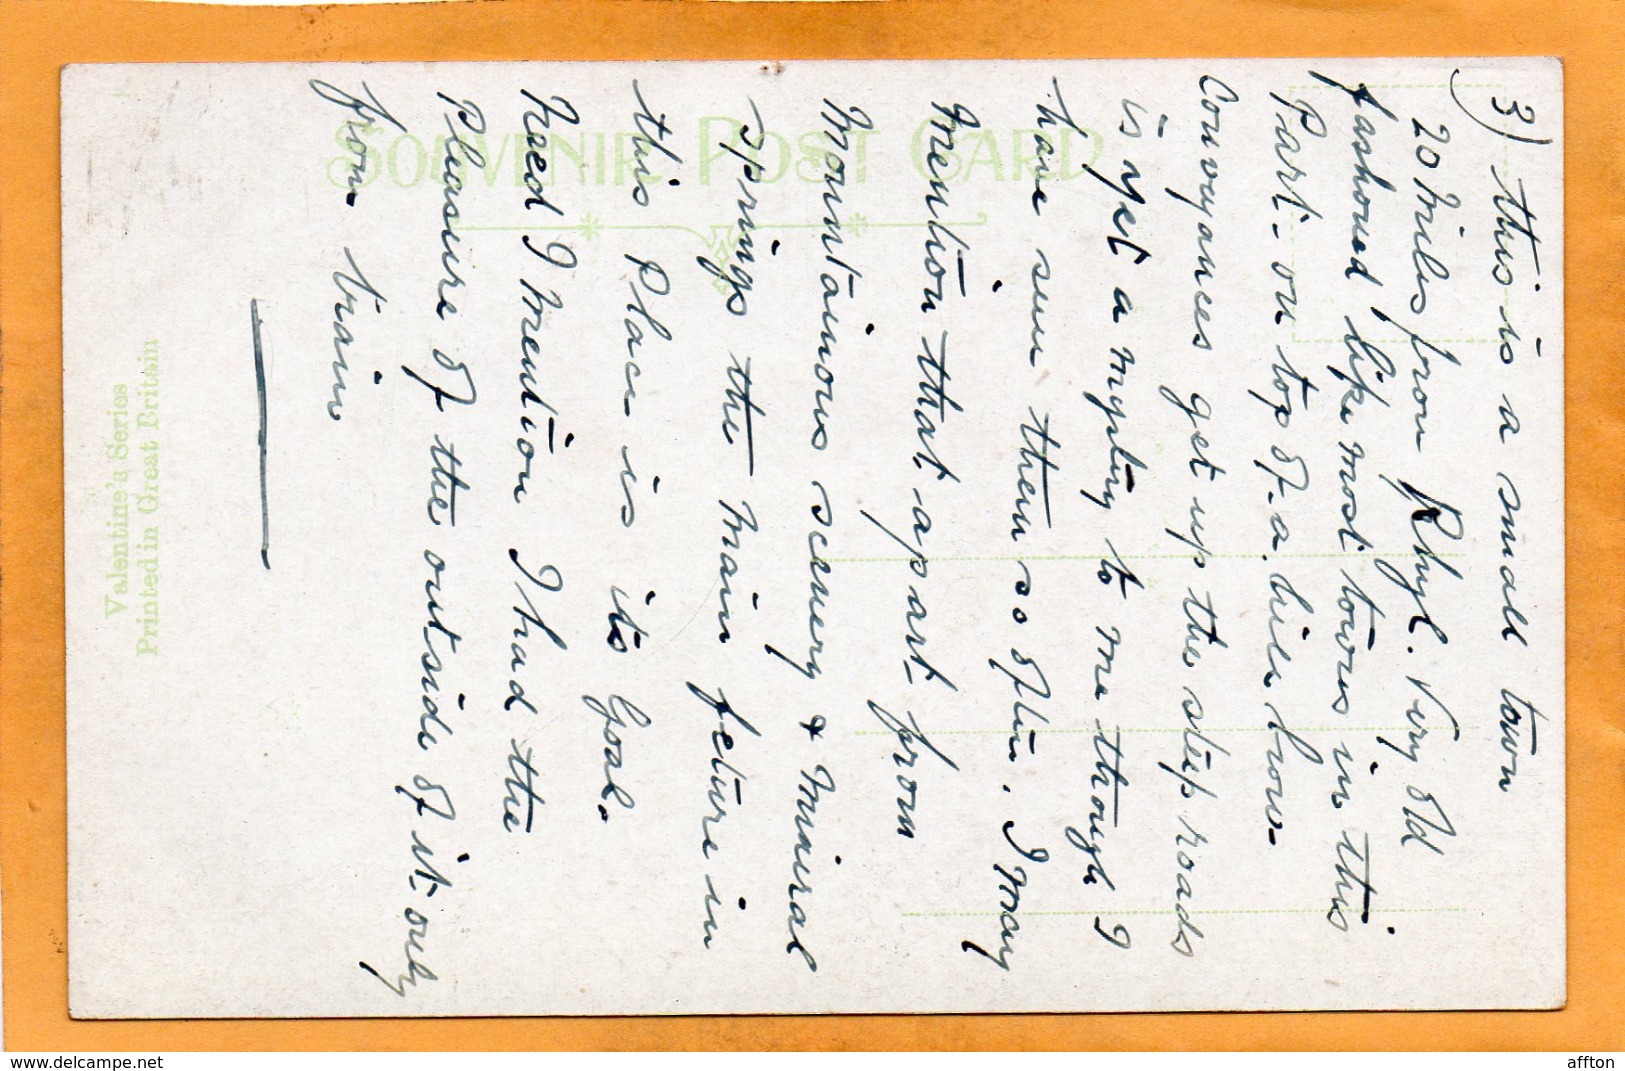 3) this is a small town
20 Miles from Rhyl. Very Old
fashoned like most towns in this
Part - on top of a hill how
Convoyances get up the steep roads
is yet a mystiry to me though I
have seen them so often. I may
Mention that apart from
Mountainous scenery & Miniral
Springs the main feture in
this Place is its Goal.
Need I Mention I had the
Pleasure of the outside of it only
from train
SOUVENIR POST CARD
Valentine's Series
Printed in Great Britain
affton
delcampe.net